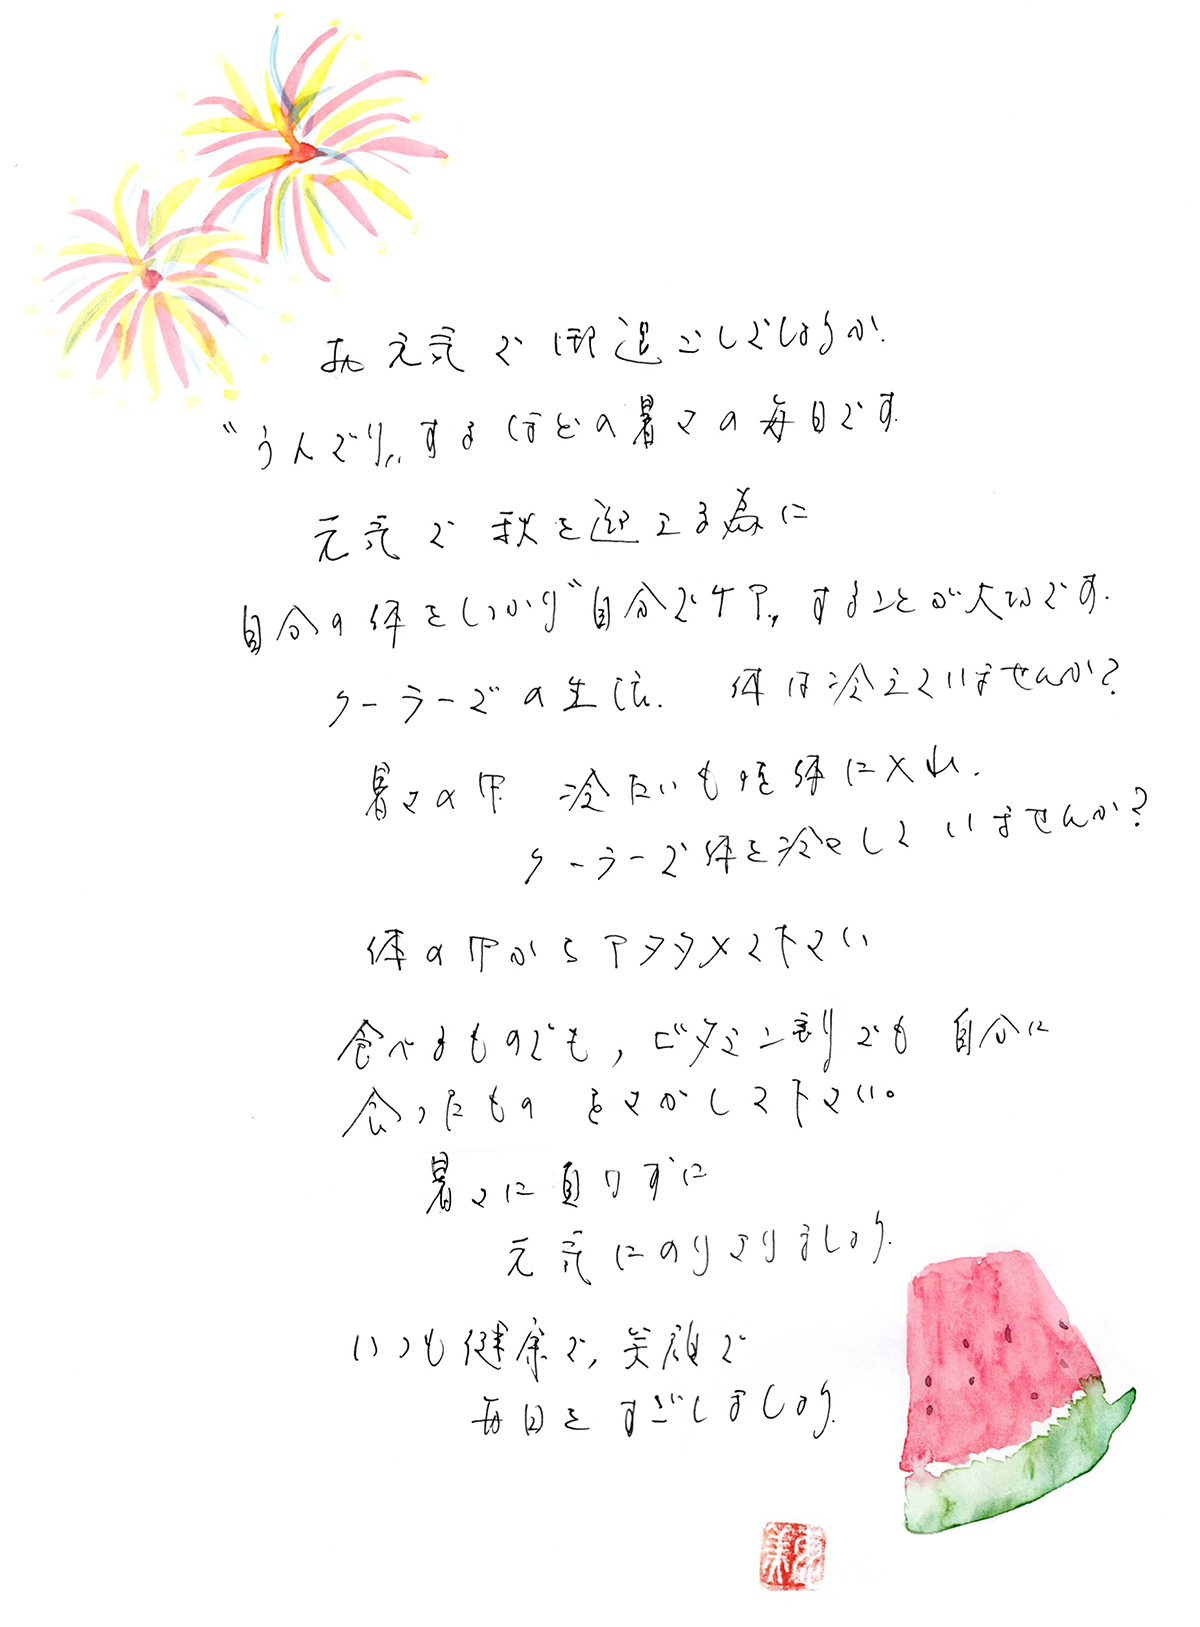 お元気で御過ごしでしょうか.
〝うんざり〟するほどの暑さの毎日です.
元気で秋を迎える為に
自分の体をしっかり〝自分でケア〟することが大切です.
クーラーでの生活. 体は冷えていませんか?
暑さの中 冷たいものを体に入れ.
クーラーで体を冷やしていませんか?
体の中からアタタメて下さい
食べるものでも, ビタミン剤でも 自分に
合ったもの をさがして下さい。
暑さに負けずに
元気にのりきりましょう.
いつも健康で, 笑顔で
毎日をすごしましょう.